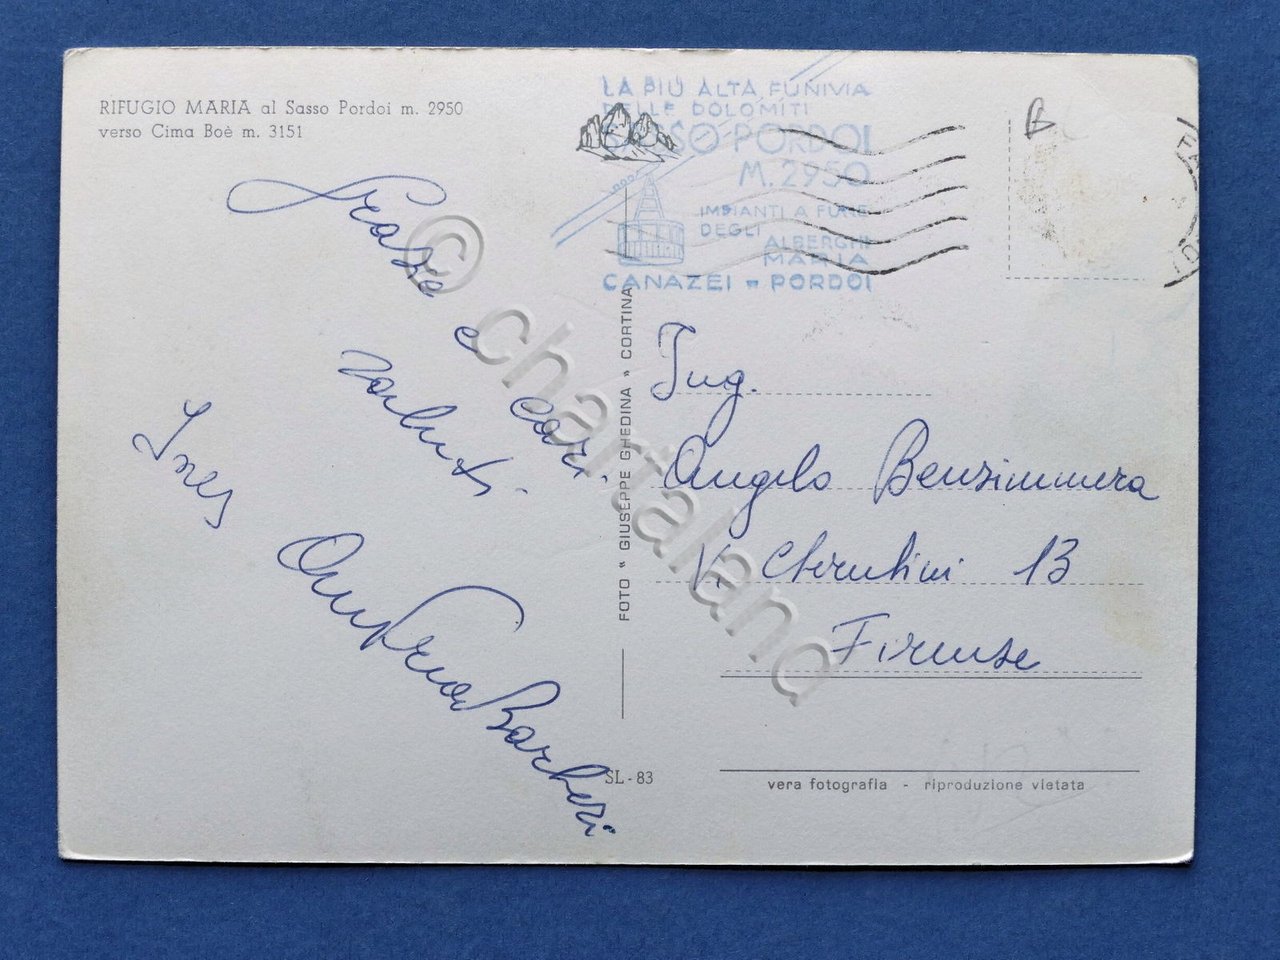 RIFUGIO MARIA al Sasso Pordoi m. 2950
verso Cima Boè m. 3151
LA PIÙ ALTA FUNIVIA
DELLE DOLOMITI
SASSO PORDOI
M. 2950
IMPIANTI A FUNE
DEGLI
ALBERGHI
MARIA
CANAZEI - PORDOI
B
Grazie e
cari
saluti.
Ines
Barbieri
FOTO « GIUSEPPE GHEDINA » CORTINA
Ing.
Angelo Bensimmera
V. Cherubini 13
Firenze
SL - 83
vera fotografia - riproduzione vietata
© chartaland